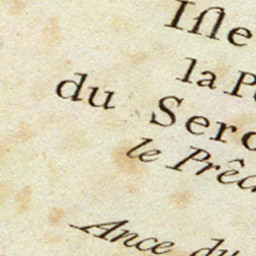 Isle
la P
du Sero
le Prêc
Ance du